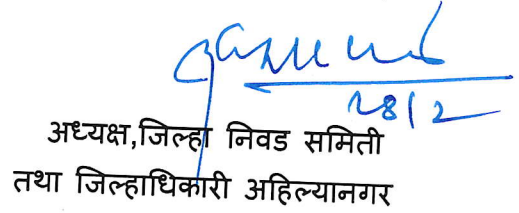 28/2
अध्यक्ष,जिल्हा निवड समिती
तथा जिल्हाधिकारी अहिल्यानगर